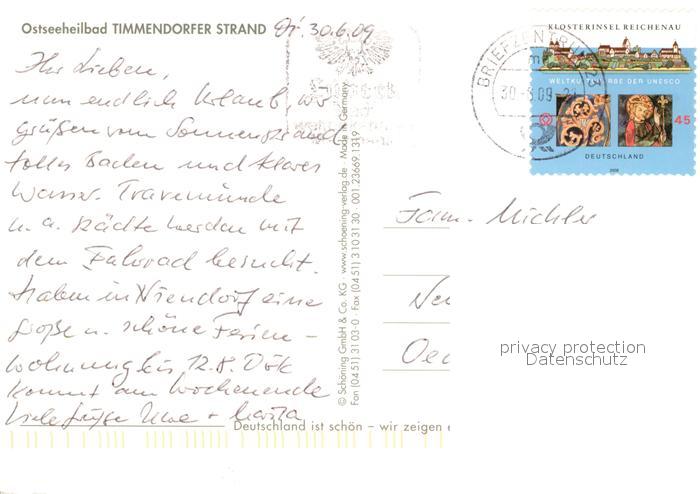 Ostseeheilbad TIMMENDORFER STRAND Di. 30.6.09
Ihr Lieben,
nun endlich Urlaub, wir
grüßen vom Sonnenstrand
tolles Baden und klares
Wasser. Travemünde
u. a. Städte werden mit
dem Fahrrad besucht.
Haben in Niendorf eine
große u. schöne Ferien-
wohnung bis 12.8.
kommt am Wochenende
Viele Grüße Uwe +
Deutschland ist schön – wir zeigen e
© Schöning GmbH & Co. KG · www.schoening-verlag.de · Made in Germany
Fon (04 51) 3 10 3-0 · Fax (04 51) 3 10 31 30 · 001.23669.1319
BRIEFZENTRUM 23
30.-6.09-21
KLOSTERINSEL REICHENAU
WELTKULTURERBE DER UNESCO
45
DEUTSCHLAND
2008
Fam. Michler
Neu
Oe
privacy protection
Datenschutz